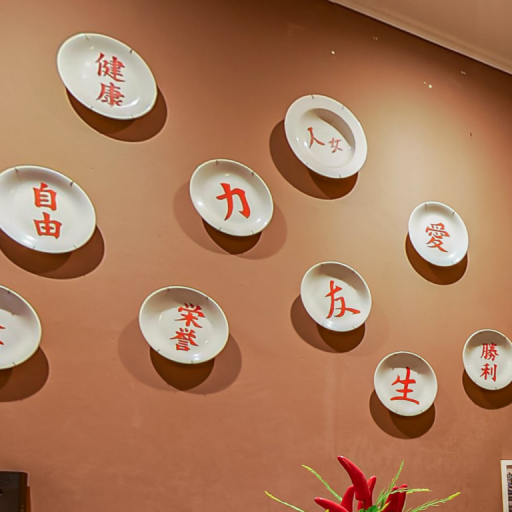 健
康
人女
自
由
力
愛
友
栄
誉
勝
利
生